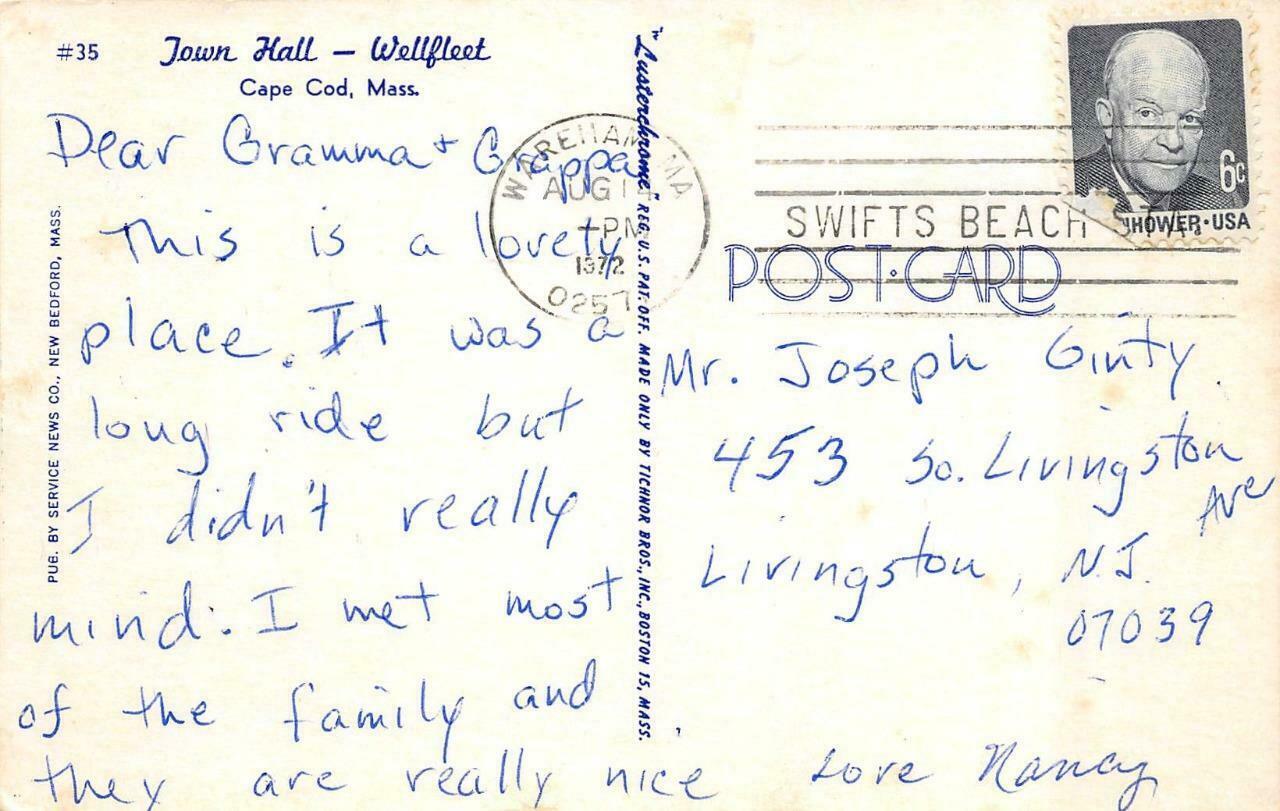 #35 Town Hall — Wellfleet
Cape Cod, Mass.
Dear Gramma + Grappa
This is a lovely
place. It was a
long ride but
I didn't really
mind. I met most
of the family and
they are really nice
Love Nancy
PUB. BY SERVICE NEWS CO., NEW BEDFORD, MASS.
"Lusterchrome" REG. U.S. PAT. OFF. MADE ONLY BY TICHNOR BROS., INC., BOSTON 15, MASS.
WAREHAM, MA
AUG
PM
1972
0257
SWIFTS BEACH
6c
HOWER·USA
POST·CARD
Mr. Joseph Ginty
453 So. Livingston
Ave
Livingston, N.J.
07039